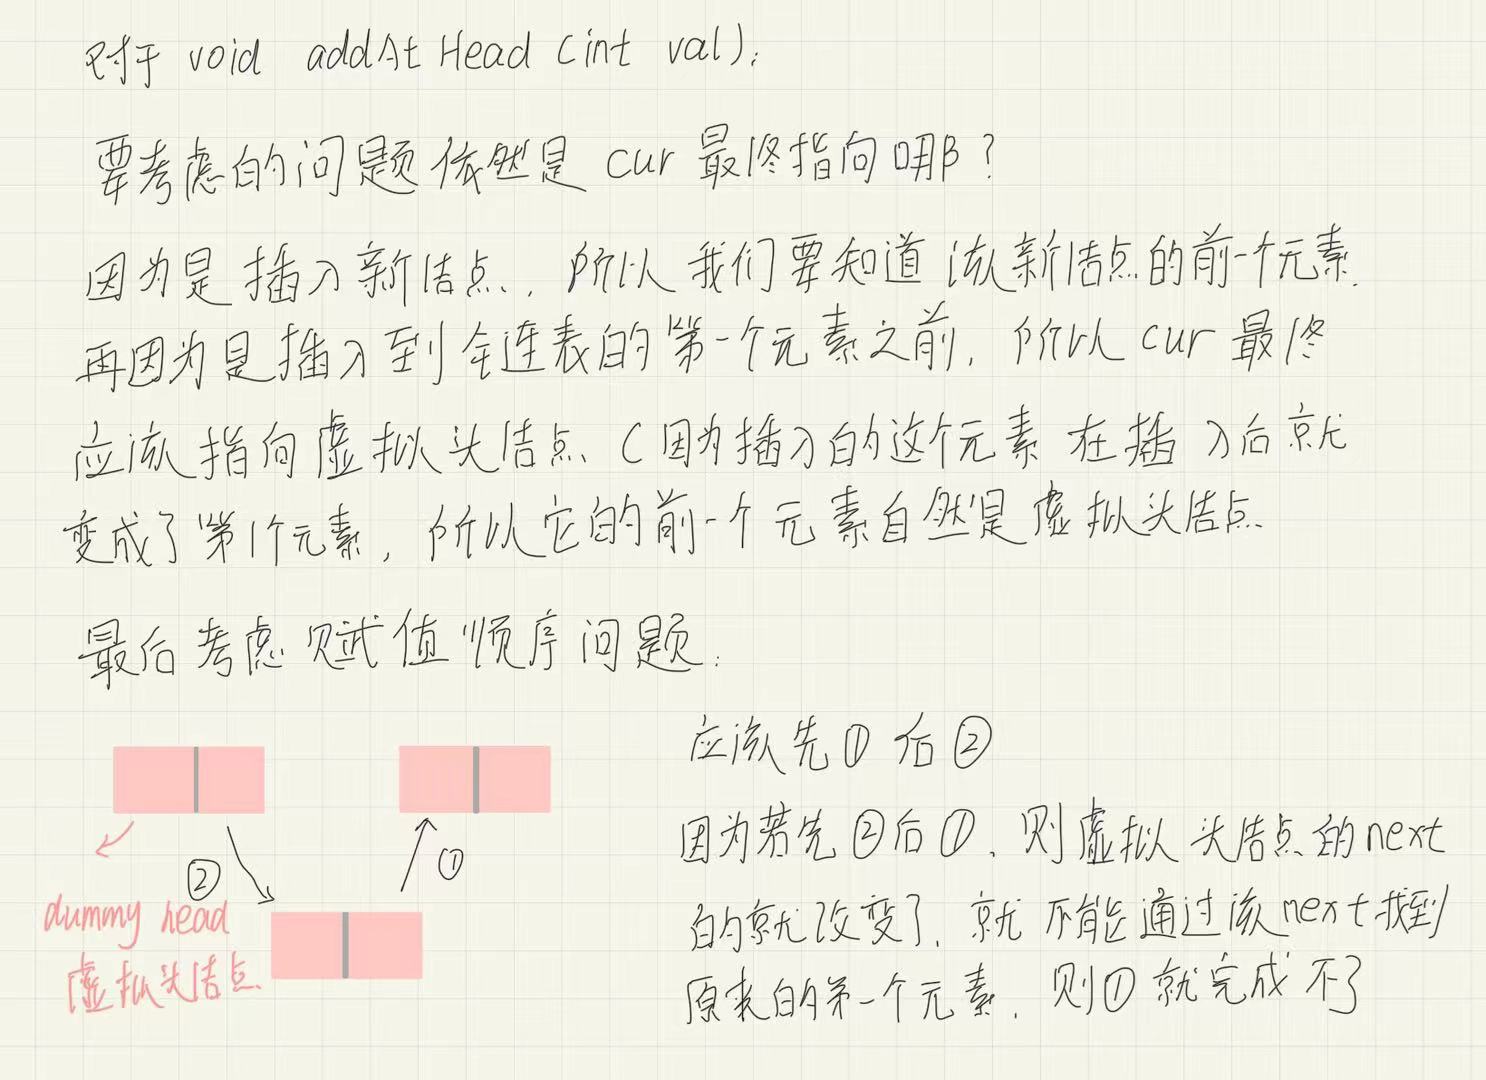 对于 void addAtHead (int val):
要考虑的问题依然是 cur 最终指向哪?
因为是插入新结点, 所以我们要知道该新结点的前一个元素.
再因为是插入到 链表的第一个元素之前, 所以 cur 最终
应该指向虚拟头结点 (因为插入的这个元素在插入后就
变成了第1个元素, 所以它的前一个元素自然是虚拟头结点
最后考虑赋值顺序问题:
应该先①后②
因为若先②后①, 则虚拟头结点的next
的就改变了, 就不能通过该next找到
原来的第一个元素, 则①就完成不了
②
①
dummy head
虚拟头结点